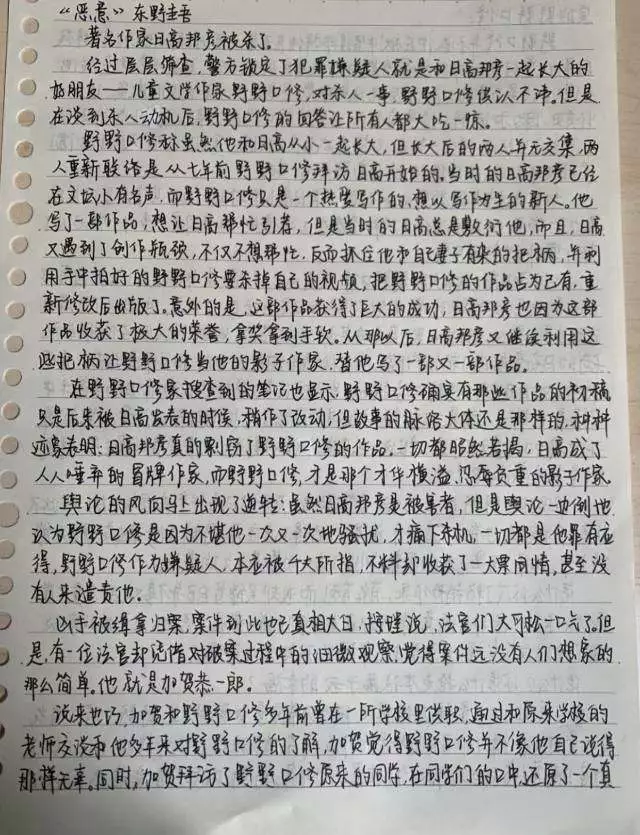 “恶意” 东野圭吾
著名作家日高邦彦被杀了。
经过层层侦查，警方锁定了犯罪嫌疑人就是和日高邦彦一起长大的
好朋友——儿童文学作家野野口修，对杀人一事，野野口修供认不讳。但是
在谈到杀人动机后，野野口修的回答让所有人都大吃一惊。
野野口修称虽然他和日高从小一起长大，但长大后的两人并无交集，两
人重新联络是从七年前野野口修拜访日高开始的。当时的日高邦彦已经
在文坛小有名声，而野野口修只是一个热爱写作的，想以写作为生的新人。他
写了一部作品，想让日高帮忙引荐，但是当时的日高总是敷衍他，而且，日高
又遇到了创作瓶颈，不仅不想帮忙，反而抓住他和自己妻子有染的把柄，并利
用手中拍好的野野口修要杀掉自己的视频，把野野口修的作品占为己有，重
新修改后出版了。意外的是，这部作品获得了巨大的成功，日高邦彦也因为这部
作品收获了极大的荣誉，拿奖拿到手软。从那以后，日高邦彦又继续利用这
些把柄让野野口修当他的影子作家，替他写了一部又一部作品。
在野野口修家搜查到的笔记也显示，野野口修确实有那些作品的初稿
只是后来被日高出表的时候，稍作了改动，但故事的脉络大体还是那样的，种种
迹象表明：日高邦彦真的剽窃了野野口修的作品。一切都昭然若揭，日高成了
人人唾弃的冒牌作家，而野野口修，才是那个才华横溢，忍辱负重的影子作家。
舆论的风向马上出现了逆转：虽然日高邦彦是被害者，但是舆论一边倒地
认为野野口修是因为不堪他一次又一次地骚扰，才痛下杀机，一切都是他罪有应
得，野野口修作为嫌疑人，本应被千夫所指，不料却收获了一大票同情，甚至没
有人来谴责他。
凶手被缉拿归案，案件到此也已真相大白，按理说，法官们大可松一口气了。但
是，有一位法官却凭借对破案过程中的细微观察，觉得案件远没有人们想象的
那么简单。他就是加贺恭一郎。
说来也巧，加贺和野野口修多年前曾在一所学校里供职，通过和原来学校的
老师交谈和他多年来对野野口修的了解，加贺觉得野野口修并不像他自己说得
那样无辜。同时，加贺拜访了野野口修原来的同学，在同学们的口中，还原了一个真